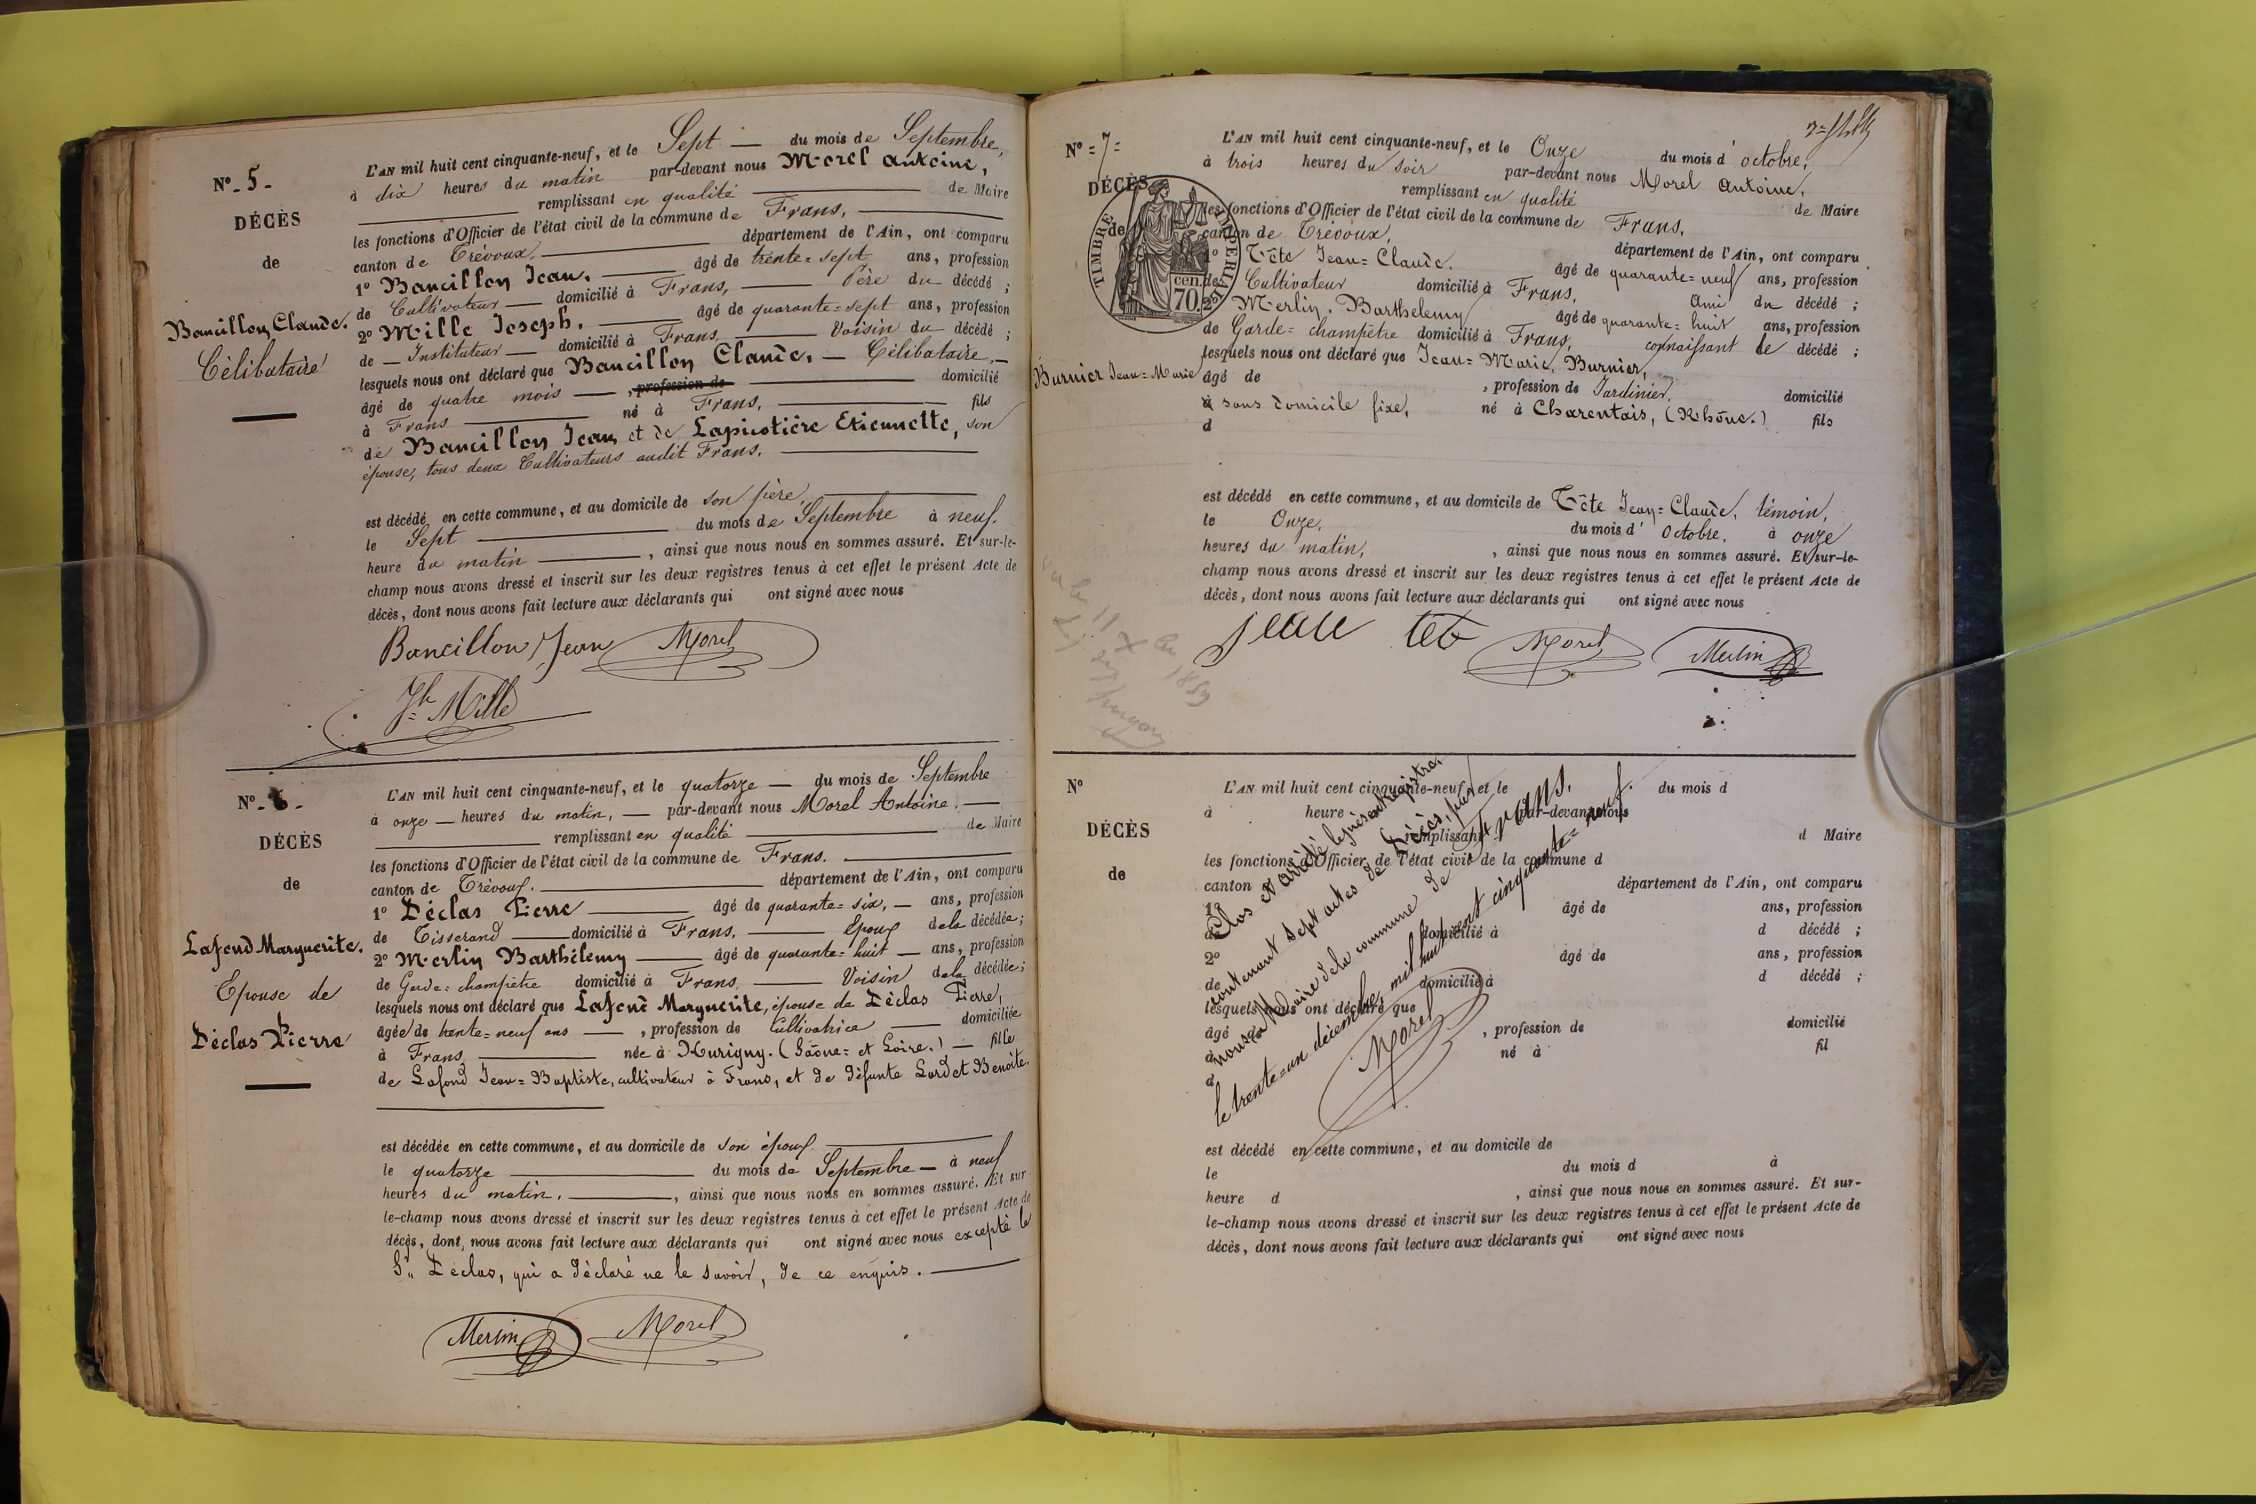 N° - 5 -
DÉCÈS
de
Bancillon Claude.
Célibataire
L'AN mil huit cent cinquante-neuf, et le Sept — du mois de Septembre,
à dix heures du matin par-devant nous Morel Antoine,
remplissant en qualité de Maire
les fonctions d'Officier de l'état civil de la commune de Frans,
canton de Trévoux. département de l'Ain, ont comparu
1° Bancillon Jean, âgé de trente=sept ans, profession
de Cultivateur — domicilié à Frans, — Père du décédé ;
2° Mille Joseph, âgé de quarante=sept ans, profession
de — Instituteur — domicilié à Frans, Voisin du décédé ;
lesquels nous ont déclaré que Bancillon Claude, — Célibataire, —
âgé de quatre mois —, profession de domicilié
à Frans né à Frans, fils
de Bancillon Jean et de Lapicotière Etiennette, son
épouse, tous deux Cultivateurs audit Frans.
est décédé en cette commune, et au domicile de son père,
le Sept du mois de Septembre à neuf
heure du matin, ainsi que nous nous en sommes assuré. Et sur-le-
champ nous avons dressé et inscrit sur les deux registres tenus à cet effet le présent Acte de
décès, dont nous avons fait lecture aux déclarants qui ont signé avec nous
Bancillon Jean Morel
Jh Mille
N° - 6 -
DÉCÈS
de
Lafond Marguerite.
Epouse de
Déclas Pierre
L'AN mil huit cent cinquante-neuf, et le quatorze — du mois de Septembre
à onze — heures du matin, — par-devant nous Morel Antoine, —
remplissant en qualité de Maire
les fonctions d'Officier de l'état civil de la commune de Frans.
canton de Trévoux. département de l'Ain, ont comparu
1° Déclas Pierre âgé de quarante=six, — ans, profession
de Tisserand — domicilié à Frans, Epoux de la décédée ;
2° Merlin Barthélemy âgé de quarante=huit — ans, profession
de Garde=champêtre domicilié à Frans, Voisin de la décédée ;
lesquels nous ont déclaré que Lafond Marguerite, épouse de Déclas Pierre,
âgée de trente=neuf ans —, profession de Cultivatrice — domiciliée
à Frans, née à Hurigny. (Saône=et Loire.) — fille
de Lafond Jean=Baptiste, cultivateur à Frans, et de défunte Lardet Benoîte.
est décédée en cette commune, et au domicile de son époux
le quatorze du mois de Septembre — à neuf
heures du matin, ainsi que nous nous en sommes assuré. Et sur
le-champ nous avons dressé et inscrit sur les deux registres tenus à cet effet le présent Acte de
décès, dont nous avons fait lecture aux déclarants qui ont signé avec nous excepté le
Sr Déclas, qui a déclaré ne le savoir, de ce enquis.
Merlin Morel
N° = 7 =
DÉCÈS
de
TIMBRE IMPERIAL
70 cen.
Burnier Jean=Marie
L'AN mil huit cent cinquante-neuf, et le Onze du mois d'octobre,
à trois heures du soir par-devant nous Morel Antoine,
remplissant en qualité de Maire
les fonctions d'Officier de l'état civil de la commune de Frans,
canton de Trévoux, département de l'Ain, ont comparu
1° Tête Jean=Claude. âgé de quarante=neuf ans, profession
de Cultivateur domicilié à Frans, Ami du décédé ;
2° Merlin, Barthelemy âgé de quarante=huit ans, profession
de Garde=champêtre domicilié à Frans, connaissant le décédé ;
lesquels nous ont déclaré que Jean=Marie, Burnier,
âgé de , profession de Jardinier, domicilié
à sans domicile fixe, né à Charentais, (Rhône.) fils
d
est décédé en cette commune, et au domicile de Tête Jean=Claude, témoin,
le Onze, du mois d'octobre, à onze
heures du matin, , ainsi que nous nous en sommes assuré. Et sur-le-
champ nous avons dressé et inscrit sur les deux registres tenus à cet effet le présent Acte de
décès, dont nous avons fait lecture aux déclarants qui ont signé avec nous
jeau tet Morel Merlin
N°
DÉCÈS
de
L'AN mil huit cent cinquante-neuf, et le du mois d
à heure par-devant nous
remplissant d Maire
les fonctions d'Officier de l'état civil de la commune d
canton département de l'Ain, ont comparu
1° âgé de ans, profession
de domicilié à d décédé ;
2° âgé de ans, profession
de domicilié à d décédé ;
lesquels nous ont déclaré que
âgé de , profession de domicilié
à né à fil
d
Clos et arrêté le présent registre,
contenant sept actes de Décès, par
nous Maire de la commune de Frans.
le trente=un décembre mil huit cent cinquante=neuf.
Morel
est décédé en cette commune, et au domicile de
le du mois d à
heure d , ainsi que nous nous en sommes assuré. Et sur-
le-champ nous avons dressé et inscrit sur les deux registres tenus à cet effet le présent Acte de
décès, dont nous avons fait lecture aux déclarants qui ont signé avec nous